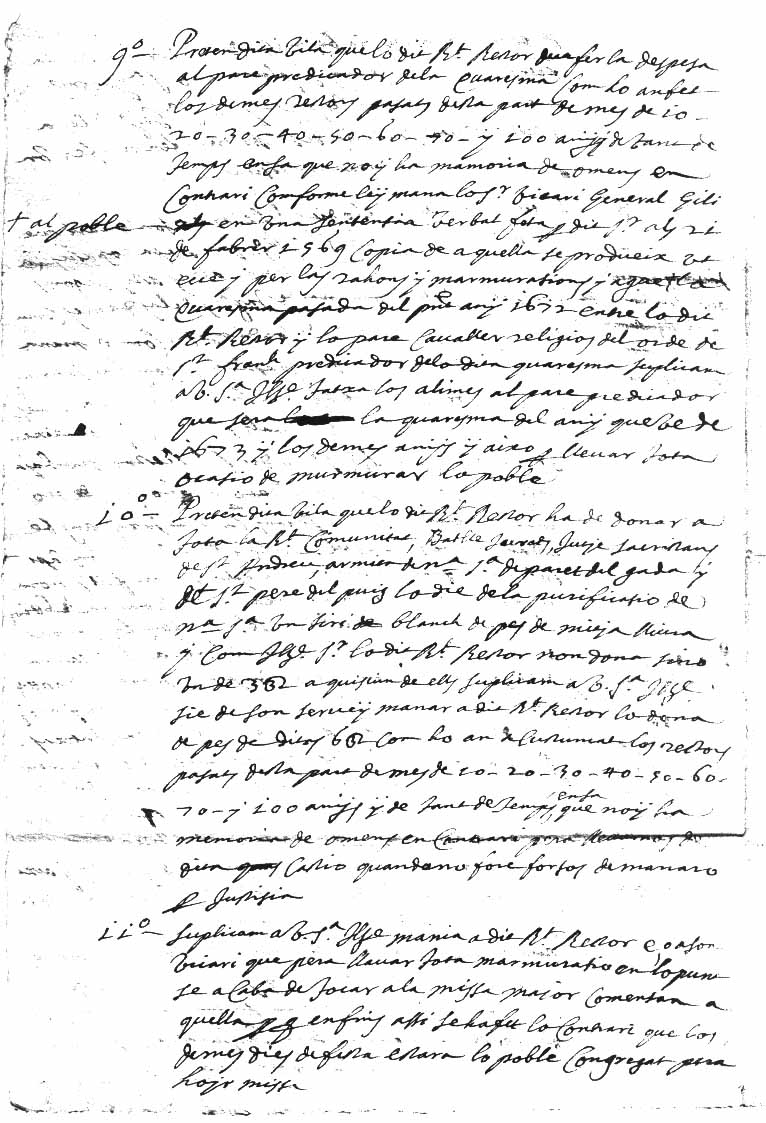 9º Preten dita Vila que lo dit Rt Rector deu fer la despesa
al pare predicador dela Quaresma Com ho an fet
los demes rectors pasats desta part de mes de 10 -
20 - 30 - 40 - 50 - 60 - 70 - y 100 anys y de tant de
temps ensa que noy ha memoria de omens en
Contrari Conforme ley mana lo Sr Vicari General Gili
+ al poble en una Sententia Verbal feta p dit Sr als 21
de fabrer 1569 Copia de aquella se produeix
y per las rahons y marmurations y
Quaresma pasada del pnt any 1672 entre lo dit
Rt Rector y lo pare Cavaller religios del orde de
St franch predicador dela dita quaresma suplicam
a V. Sa Illse tatxa los aliments al pare predicador
que sera la quaresma del any que ve de
1673 y los demes anys y aixo p llevar tota
ocatio de murmurar lo poble
10º Preten dita Vila que lo dit Rt Rector ha de donar a
tota la Rt Comunitat, Batlle Jurats, Jutje sacristans
de St Andreu, armita de na Sa de paret del gada y
de St pere del puig lo die dela purificatio de
na Sa Un siri blanch de pes de mitja lliura
y Com Illse Sr lo dit Rt Rector non dona sino
Un de 3 a quiscun de ells suplicam a V. Sa Illse
sie de son servey manar a dit Rt Rector lo dona
de pes de ditas 6 Com ho an Custumat los rectors
pasats desta part de mes de 10 - 20 - 30 - 40 - 50 - 60 -
70 - y 100 anys y de tant de temps ensa que noy ha
memoria de omens en Contrari pera
dita Custio quandono fore forsos demanaro
p Justisia
11º suplicam a V. Sa Illse mania a dit Rt Rector e o a son
Vicari que pera llevar tota marmuratio en lo punt
se acaba de tocar a la missa major Comensan a
quella p q en fins assi se ha fet lo Contrari que los
demes dies de festa estara lo poble Congregat pera
hoyr missa